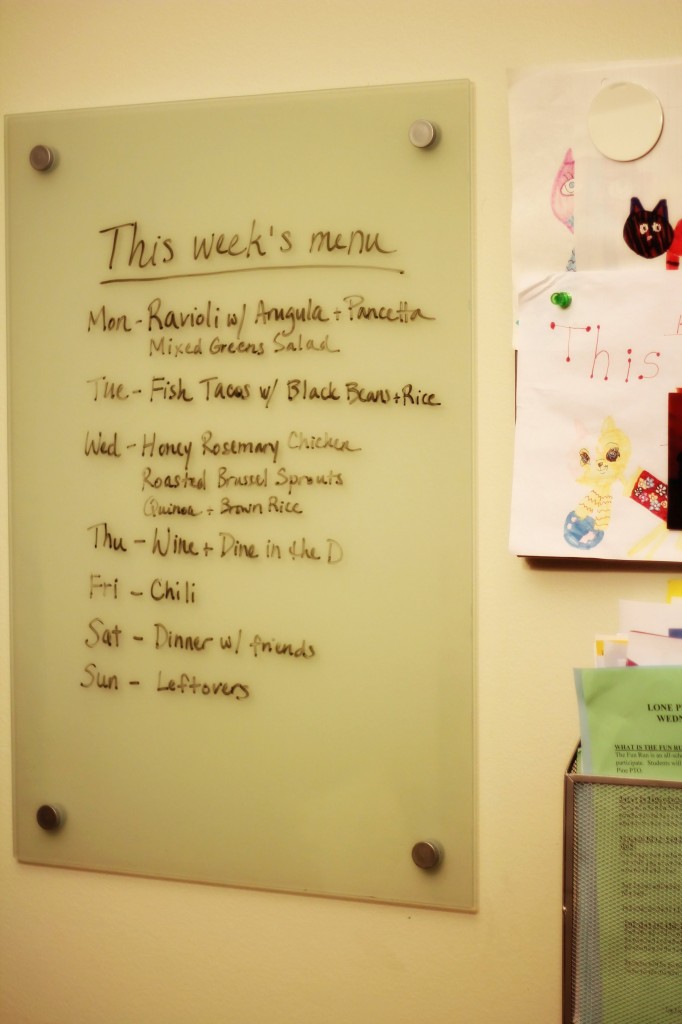 This week's menu
Mon - Ravioli w/ Arugula + Pancetta
Mixed Greens Salad
Tue - Fish Tacos w/ Black Beans + Rice
Wed - Honey Rosemary Chicken
Roasted Brussel Sprouts
Quinoa + Brown Rice
Thu - Wine + Dine in the D
Fri - Chili
Sat - Dinner w/ friends
Sun - Leftovers
This
LONE P
WEDN
WHAT IS THE FUN RU
The Fun Run is an all-sch
participate. Students will
Pine PTO.